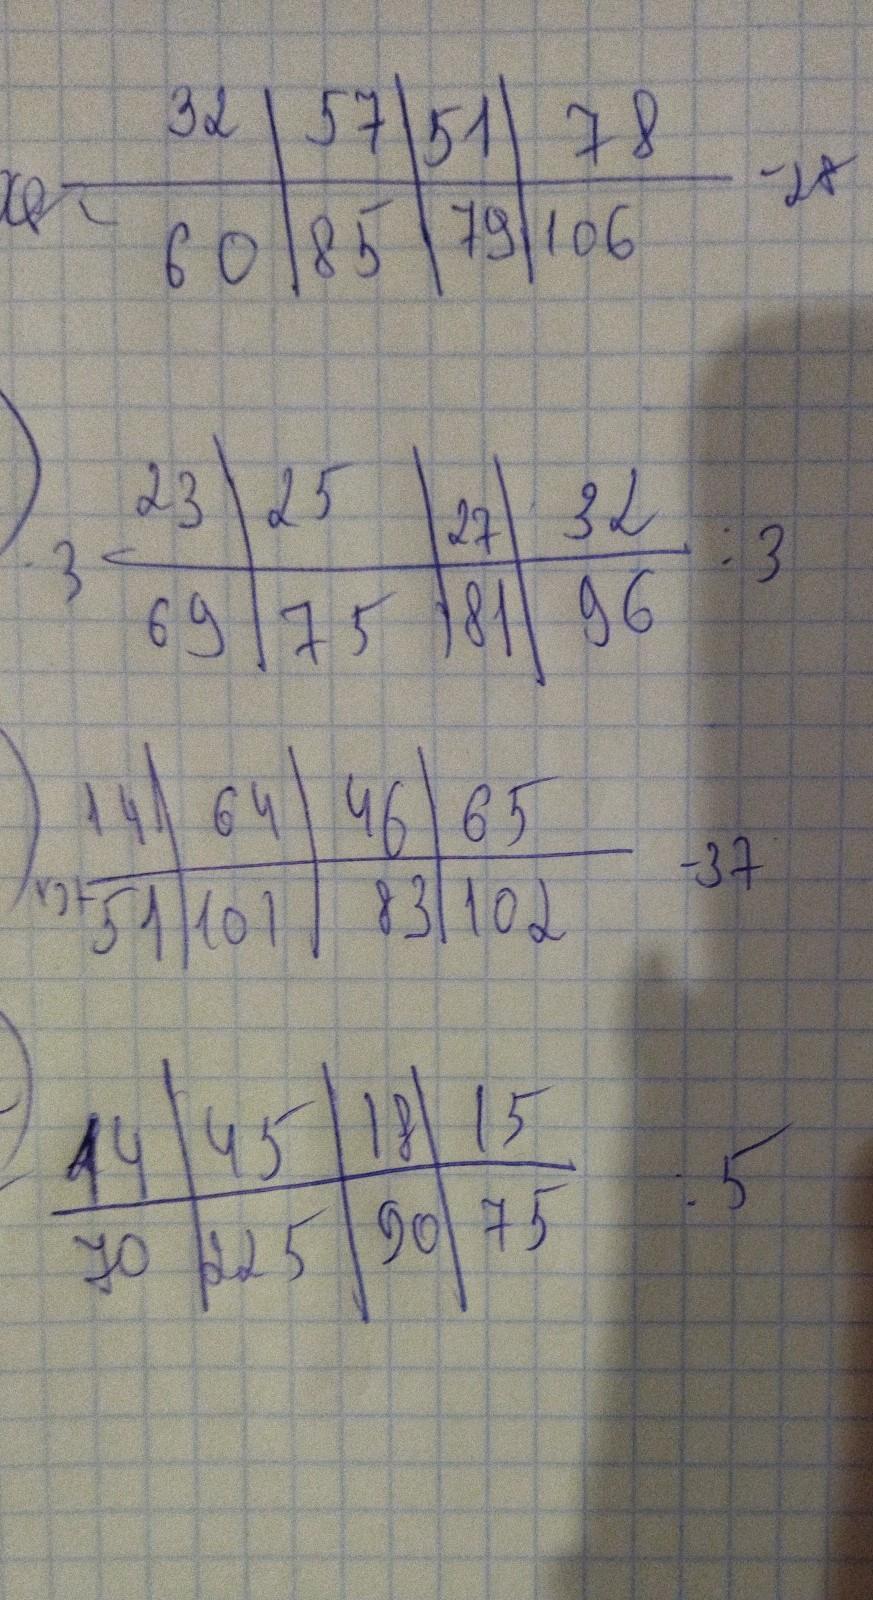 32 | 57 | 51 | 78
-28
60 | 85 | 79 | 106
23 | 25 | 27 | 32
·3 : 3
69 | 75 | 81 | 96
14 | 64 | 46 | 65
-37
51 | 101 | 83 | 102
14 | 45 | 18 | 15
: 5
70 | 225 | 90 | 75